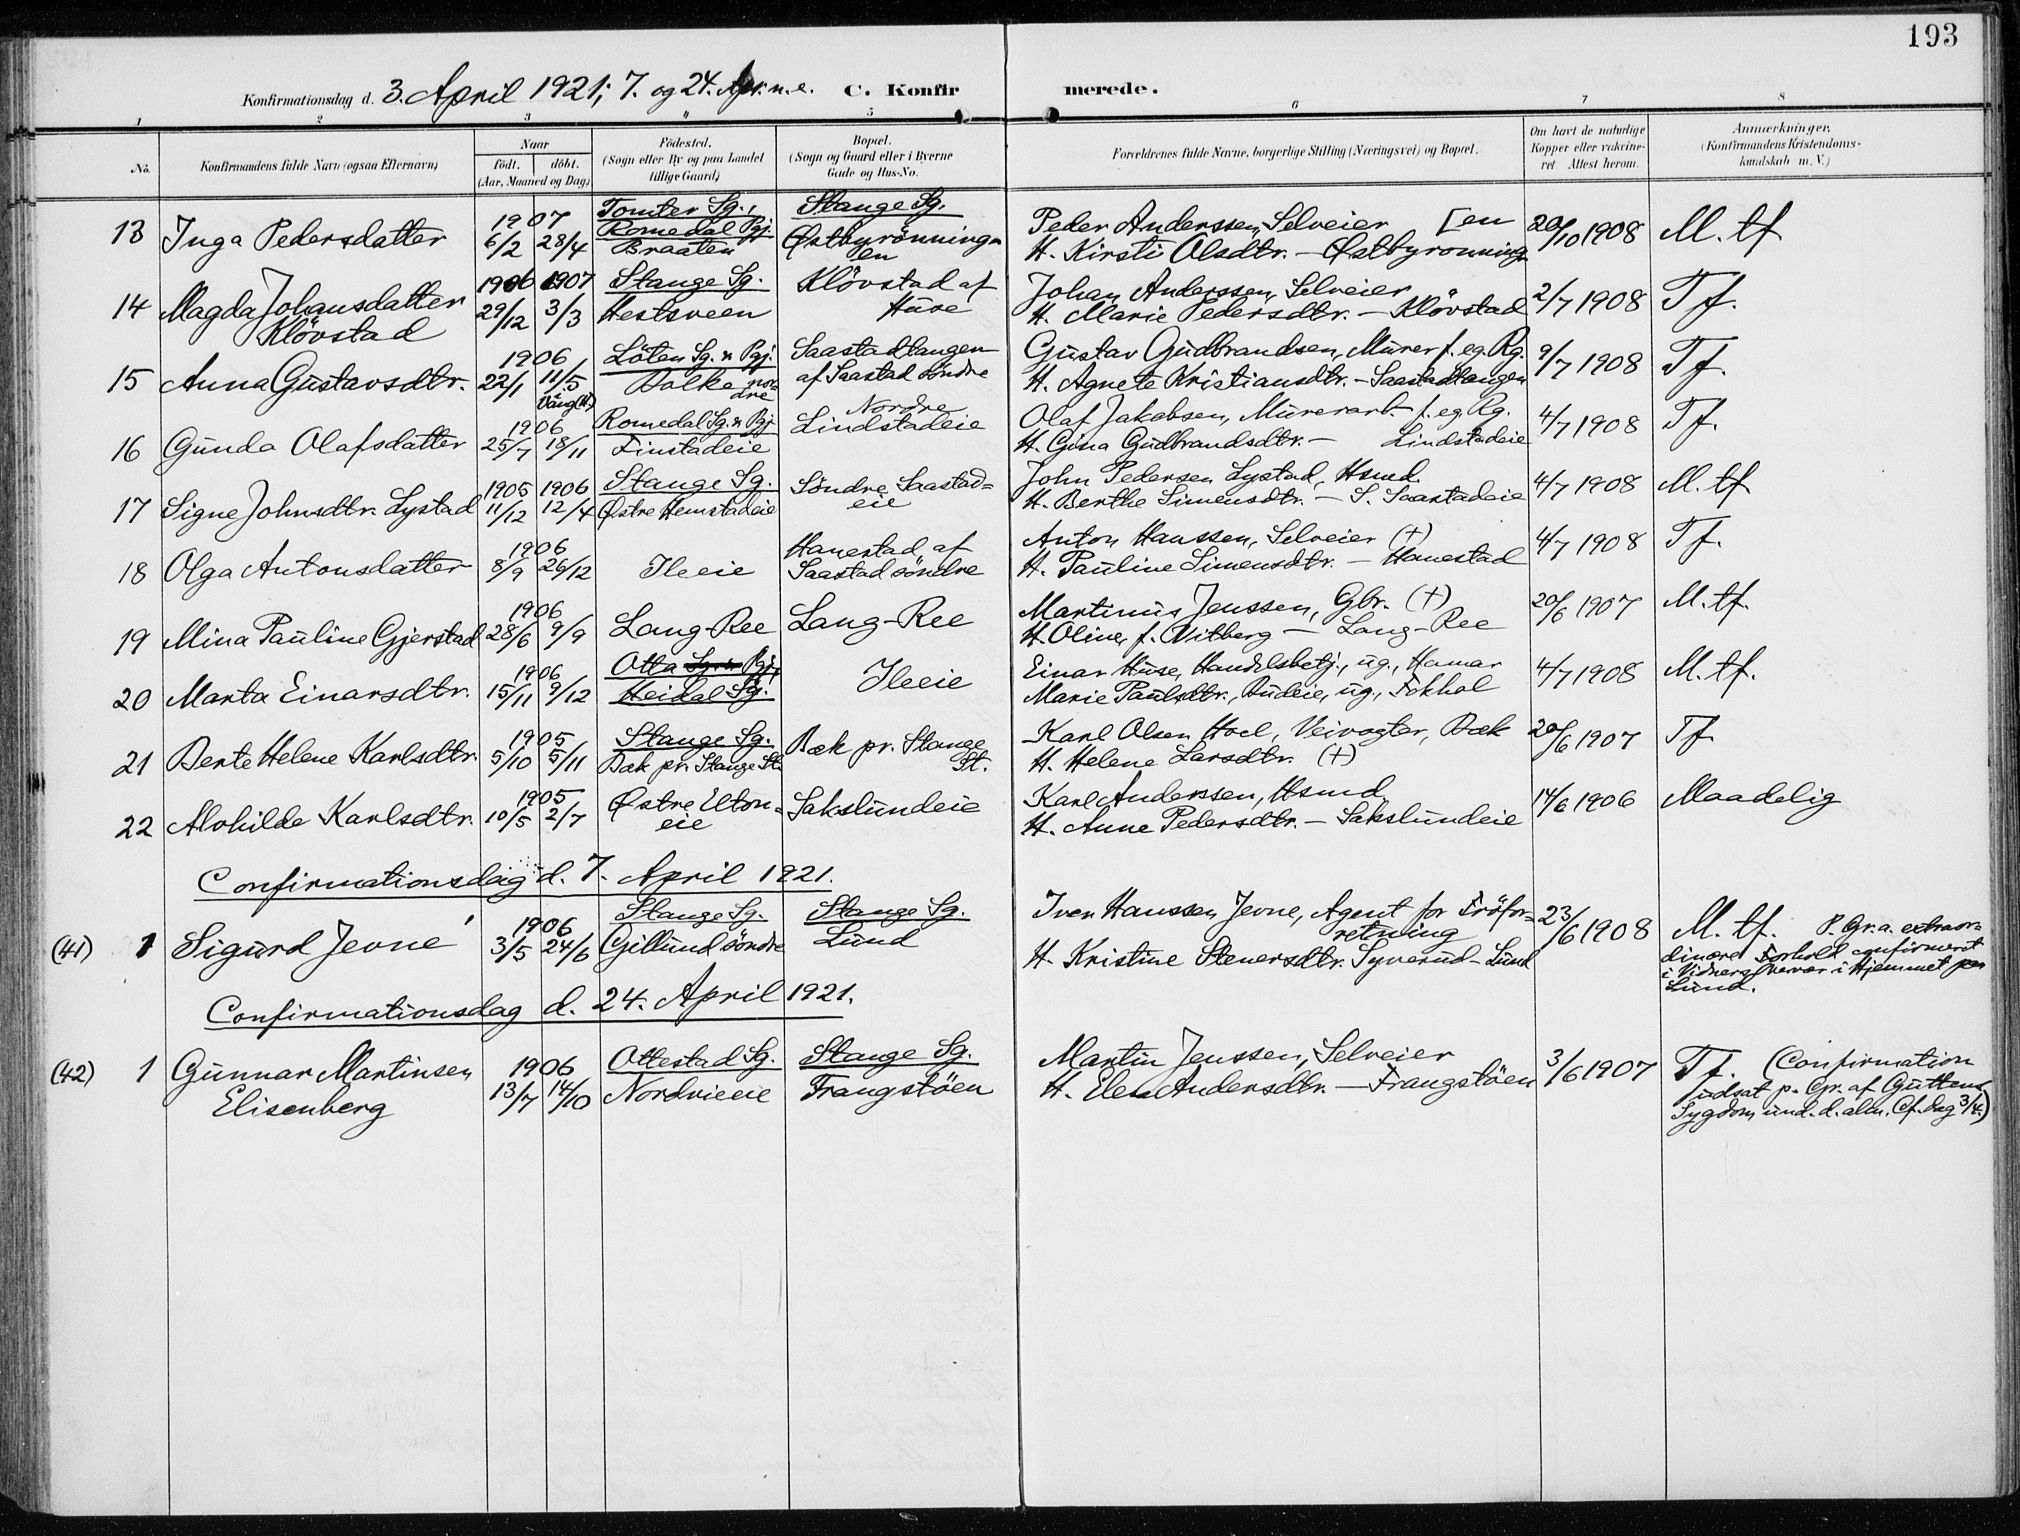 193
Konfirmationsdag d. 3. April 1921; 7. og 24. Apr. n.e. C. Konfirmerede.
1 2 3 4 5 6 7 8
No. Konfirmandens fulde Navn (ogsaa Efternavn) Naar født. døbt. (Aar, Maaned og Dag) Fødested. (Sogn eller By og paa Landet tillige Gaard) Bopæl. (Sogn og Gaard eller i Byerne Gade og Hus-No. Forældrenes fulde Navne, borgerlige Stilling (Næringsvei) og Bopæl. Om havt de naturlige Kopper eller vakcineret Attest herom. Anmærkninger. (Konfirmandens Kristendomskundskab m. V.)
1907 Tomter Sg., Stange Sg. Peder Anderssen, Selveier [en
13 Inga Pedersdatter 6/2 28/4 Romedal Pgj. Braaten Østbyrönningen H. Kirsti Olsdtr. — Østbyrönning 20/10 1908 M. tf.
1906 1907 Stange Sg. Klövstad af Johan Anderssen, Selveier
14 Magda Johansdatter Klövstad 29/12 3/3 Hestsveen Huse H. Marie Pedersdtr. — Klövstad 2/7 1908 Tf.
1906 Löten Sg. & Pgj. Saastadtangen Gustav Gudbrandsen, Murer f. eg. Rg.
15 Anna Gustavsdtr. 22/1 11/5 Vang (H.) Dolke nordre af Saastad söndre H. Agnete Kristiansdtr. — Saastadtangen 9/7 1908 Tf.
1906 Romedal Sg. & Pgj. Nordre Olaf Jakobsen, Murerarb. f. eg. Rg.
16 Gunda Olafsdatter 25/7 18/11 Finstadeie Lindstadeie H. Gina Gudbrandsdtr. — Lindstadeie 4/7 1908 Tf.
1905 1906 Stange Sg. Söndre Saastad= John Pedersen Lystad, Hsmd.
17 Signe Johnsdtr. Lystad 11/12 12/4 Østre Hemstadeie eie H. Berthe Simensdtr. — S. Saastadeie 4/7 1908 M. tf.
1906 Hanestad af Anton Hanssen, Selveier (+)
18 Olga Antonsdatter 8/9 26/12 Ileeie Saastad söndre H. Pauline Simensdtr. — Hanestad 4/7 1908 Tf.
1906 Martinus Jenssen, Gbr. (+)
19 Mina Pauline Gjerstad 28/6 9/9 Lang-Ree Lang-Ree H. Oline, f. Vitberg — Lang-Ree 20/6 1907 M. tf.
1906 Otta Sg. & Pgj., Einar Huse, Handelsbetj., ug., Hamar
20 Marta Einarsdtr. 15/11 9/12 Heidal Sg. Ileeie Marie Paulsdtr., Budeie, ug., Fokhol 4/7 1908 M. tf.
1905 Stange Sg. Bæk pr. Stange Karl Olsen Hoel, Veivogter, Bæk
21 Berte Helene Karlsdtr. 5/10 5/11 Bæk pr. Stange St. St. H. Helene Larsdtr. (+) 20/6 1907 Tf.
1905 Østre Elton= Karl Anderssen, Hsmd.
22 Alvhilde Karlsdtr. 10/5 2/7 eie Sakslundeie H. Anne Pedersdtr. — Sakslundeie 14/6 1906 Maadelig
Confirmationsdag d. 7. April 1921.
1906 Stange Sg. Stange Sg. Iver Hanssen Jevne, Agent for Fröfor=
(41) 1 Sigurd Jevne 3/5 24/6 Gillund söndre Lund retning 23/6 1908 M. tf. P. Gr. a. extraor=
H. Kristine Stenersdtr. Syverud - Lund dinære Forhold confirmeret
i Vidners Nærvær i Hjemmet paa
Lund.
Confirmationsdag d. 24. April 1921.
1906 Ottestad Sg. Stange Sg. Martin Jenssen, Selveier
(42) 1 Gunnar Martinsen Elisenberg 13/7 14/10 Nordvieeie Frangstöen H. Elen Andersdtr. — Frangstöen 3/6 1907 Tf. (Confirmation
udsat p. Gr. af Guttens
Sygdom und. d. alm. Cf. dag 3/4.)